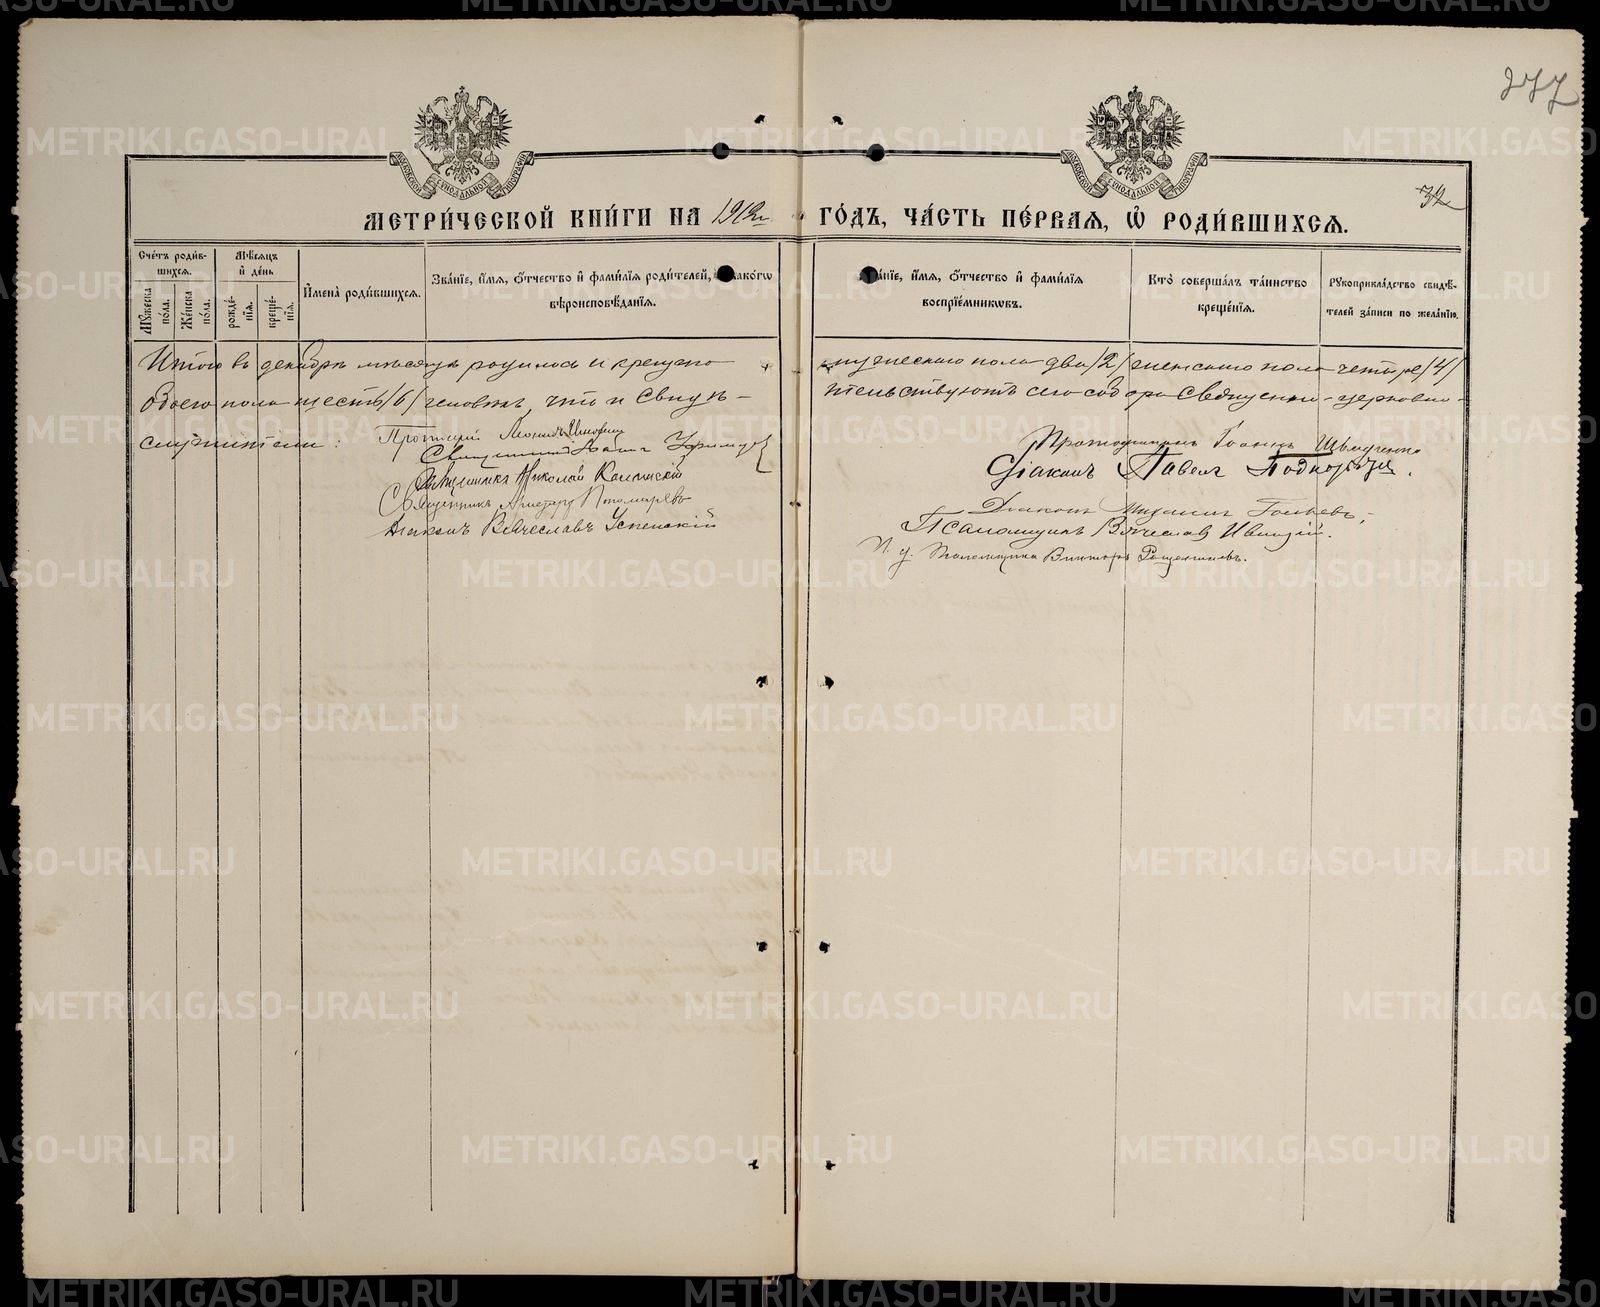 277
32
МЕТРИ́ЧЕСКОЙ КНИ́ГИ НА 1912й ГО́ДЪ, ЧА́СТЬ ПЕ́РВАЯ, Ѡ҆ РОДИ́ВШИХСЯ.
Сче́тъ роди́вшихся.
Му́жеска по́ла.
Же́нска по́ла.
Мѣ́сяцъ и҆ де́нь
рожде́нїя.
креще́нїя.
И҆мена̀ роди́вшихся.
Зва́нїе, и҆́мя, ѻ҆́тчество и҆ фами́лїя роди́телей, како́гѡ вѣроисповѣ́данїя.
Зва́нїе, и҆́мя, ѻ҆́тчество и҆ фами́лїя воспрїе́мникѡвъ.
Кто̀ соверша́лъ та́инство креще́нїя.
Рꙋкоприкла́дство свидѣ́телей за́писи по жела́нїю.
Итого въ декабрѣ мѣсяцѣ родилось и крещено мужескаго пола два /2/ женскаго пола четыре /4/
обоего пола шесть /6/ человѣкъ, что и свидѣ-тельствуютъ сего собора Священно-церковно-
служители:
Протоіерей Леонидъ
Священникъ Іоаннъ
Священникъ Николай
Священникъ Пономаревъ
Діаконъ Вячеславъ Успенскій
Протодіаконъ Іоаннъ
Діаконъ Павелъ
Діаконъ Михаилъ
Псаломщикъ Вячеславъ
И. д. Псаломщика Викторъ
METRIKI.GASO-URAL.RU